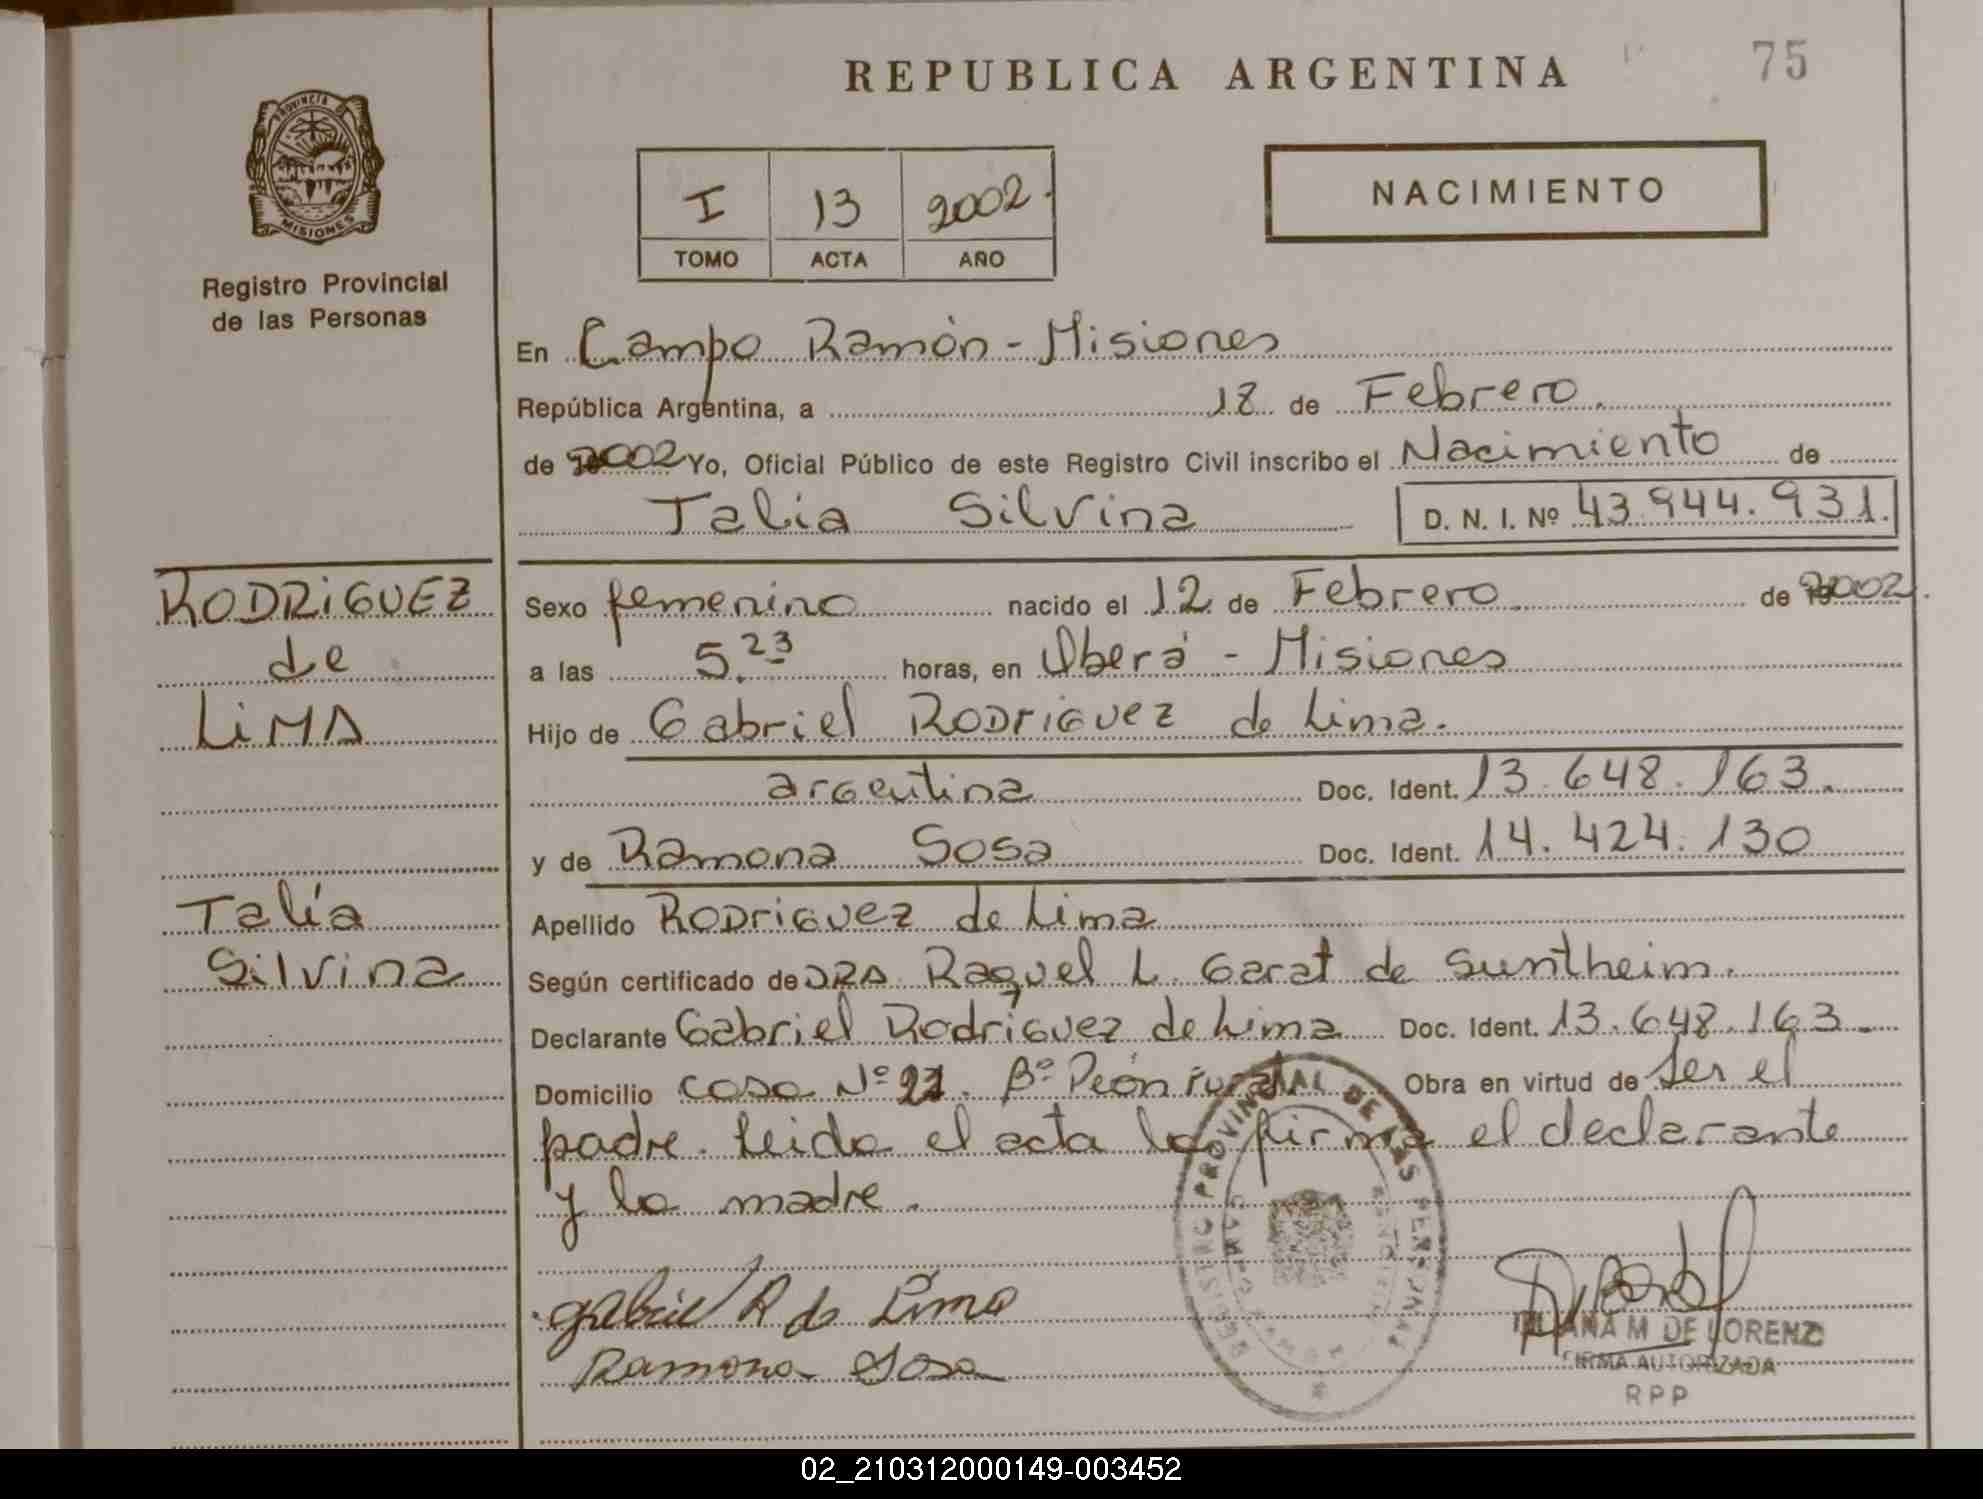 REPUBLICA ARGENTINA
75
PROVINCIA DE
MISIONES
Registro Provincial
de las Personas
I 13 2002.
TOMO ACTA AÑO
NACIMIENTO
En Campo Ramón - Misiones
República Argentina, a 18 de Febrero.
de 2002 Yo, Oficial Público de este Registro Civil inscribo el Nacimiento de
Talia Silvina D. N. I. Nº 43.944.931.
RODRIGUEZ
de
LiMA
Talía
Silvina
Sexo femenino nacido el 12 de Febrero de 2002.
a las 5.23 horas, en Oberá - Misiones
Hijo de Gabriel RODRiGUEZ de Lima.
argentina Doc. Ident. 13.648.163.
y de Ramona Sosa Doc. Ident. 14.424.130
Apellido RODriGuez de Lima
Según certificado de DRA Raquel L. Garat de Suntheim.
Declarante Gabriel Rodriguez de Lima Doc. Ident. 13.648.163.
Domicilio casa Nº Bº Peón rural Obra en virtud de ser el
padre. Leida el acta la firma el declarante
y la madre.
Gabriel R de Lima
Ramona Sosa
PROVINCIAL DE LAS PERSONAS
CAMPO RAMON
MISIONES
M DE LORENZ
FIRMA AUTORIZADA
RPP
02_210312000149-003452